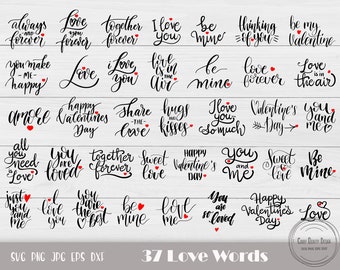 always and forever
Love you forever
together forever
I love you
be mine
thinking of you
be my Valentine
you make me happy
Love
i love you
love is in the air
be mine
love forever
Love is in the air
amore
happy Valentines Day
Share the love
hugs and kisses
I love you so much
Valentine's Day
you and me
all you need is Love
you are loved
together forever
Sweet love
HAPPY Valentine's DAY
You and me
Sweet love
Be mine
just you and me
I love you
you are the best
be mine
love me
You are so loved
Happy Valentine's Day
Love
SVG PNG JPG EPS DXF
37 Love Words